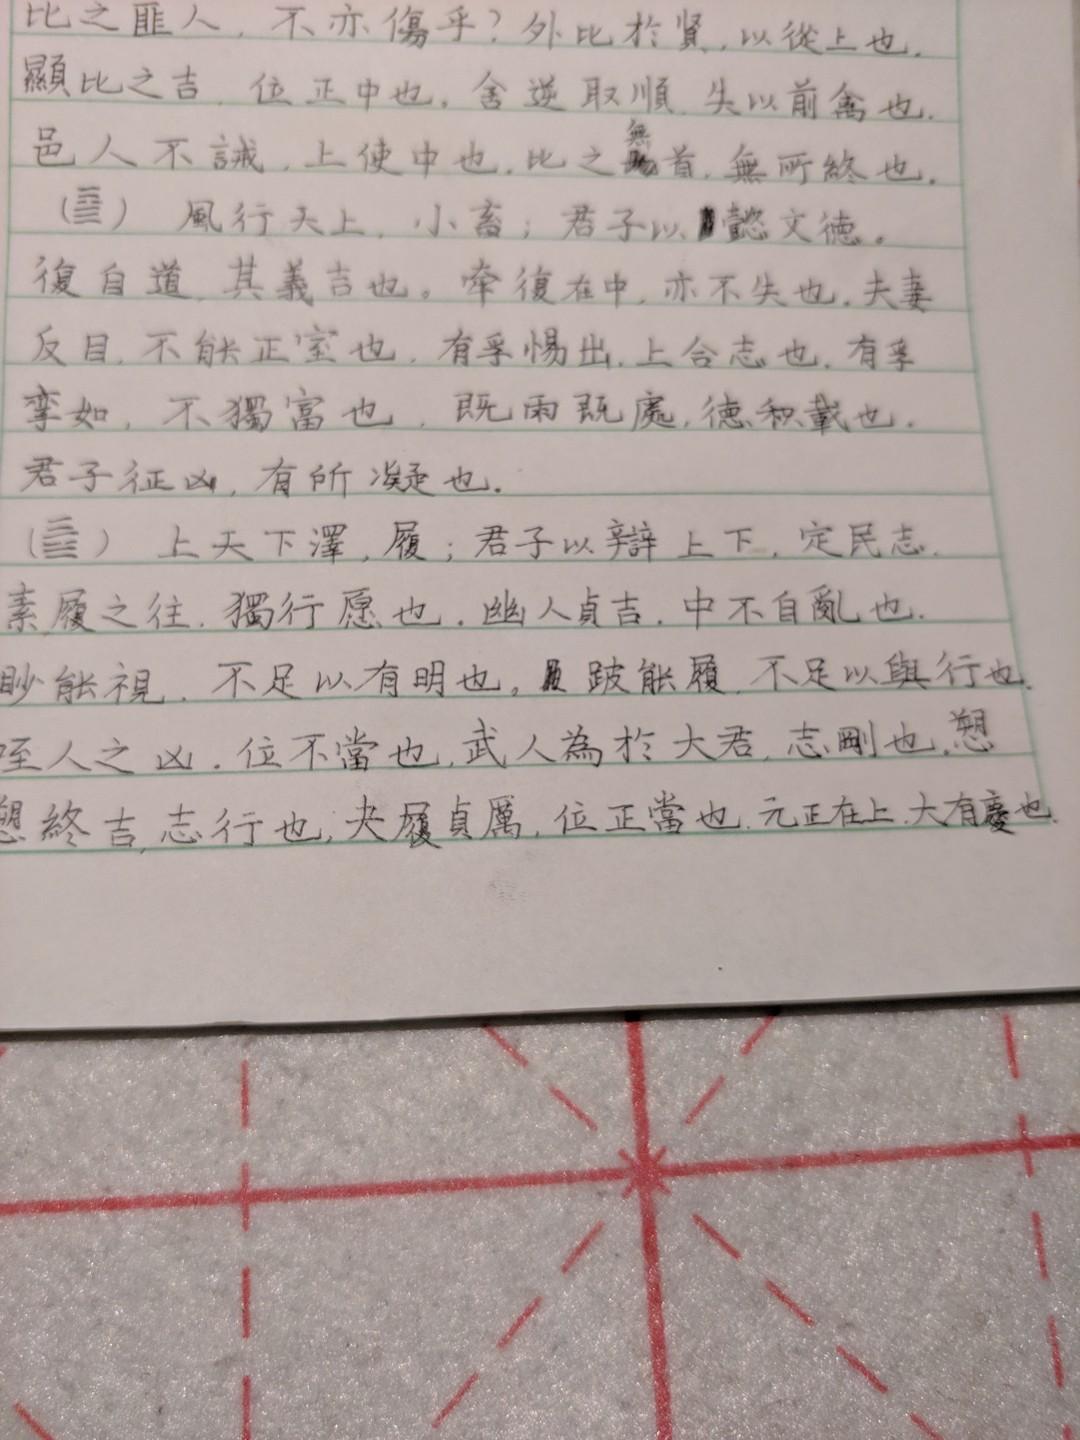 比之匪人，不亦傷乎？外比於賢，以從上也．
顯比之吉，位正中也．舍逆取順，失以前禽也．
邑人不誡，上使中也，比之無首，無所終也．
（䷈）風行天上，小畜；君子以懿文德。
復自道，其義吉也。牽復在中，亦不失也，夫妻
反目，不能正室也，有孚惕出，上合志也，有孚
孿如，不獨富也，既雨既處，德積載也．
君子征凶，有所凝也．
（䷉）上天下澤，履；君子以辯上下，定民志．
素履之往．獨行愿也．幽人貞吉．中不自亂也．
眇能視．不足以有明也。跛能履．不足以與行也．
咥人之凶．位不當也，武人為於大君，志剛也，愬
愬終吉，志行也，夬履貞厲，位正當也．元正在上．大有慶也．